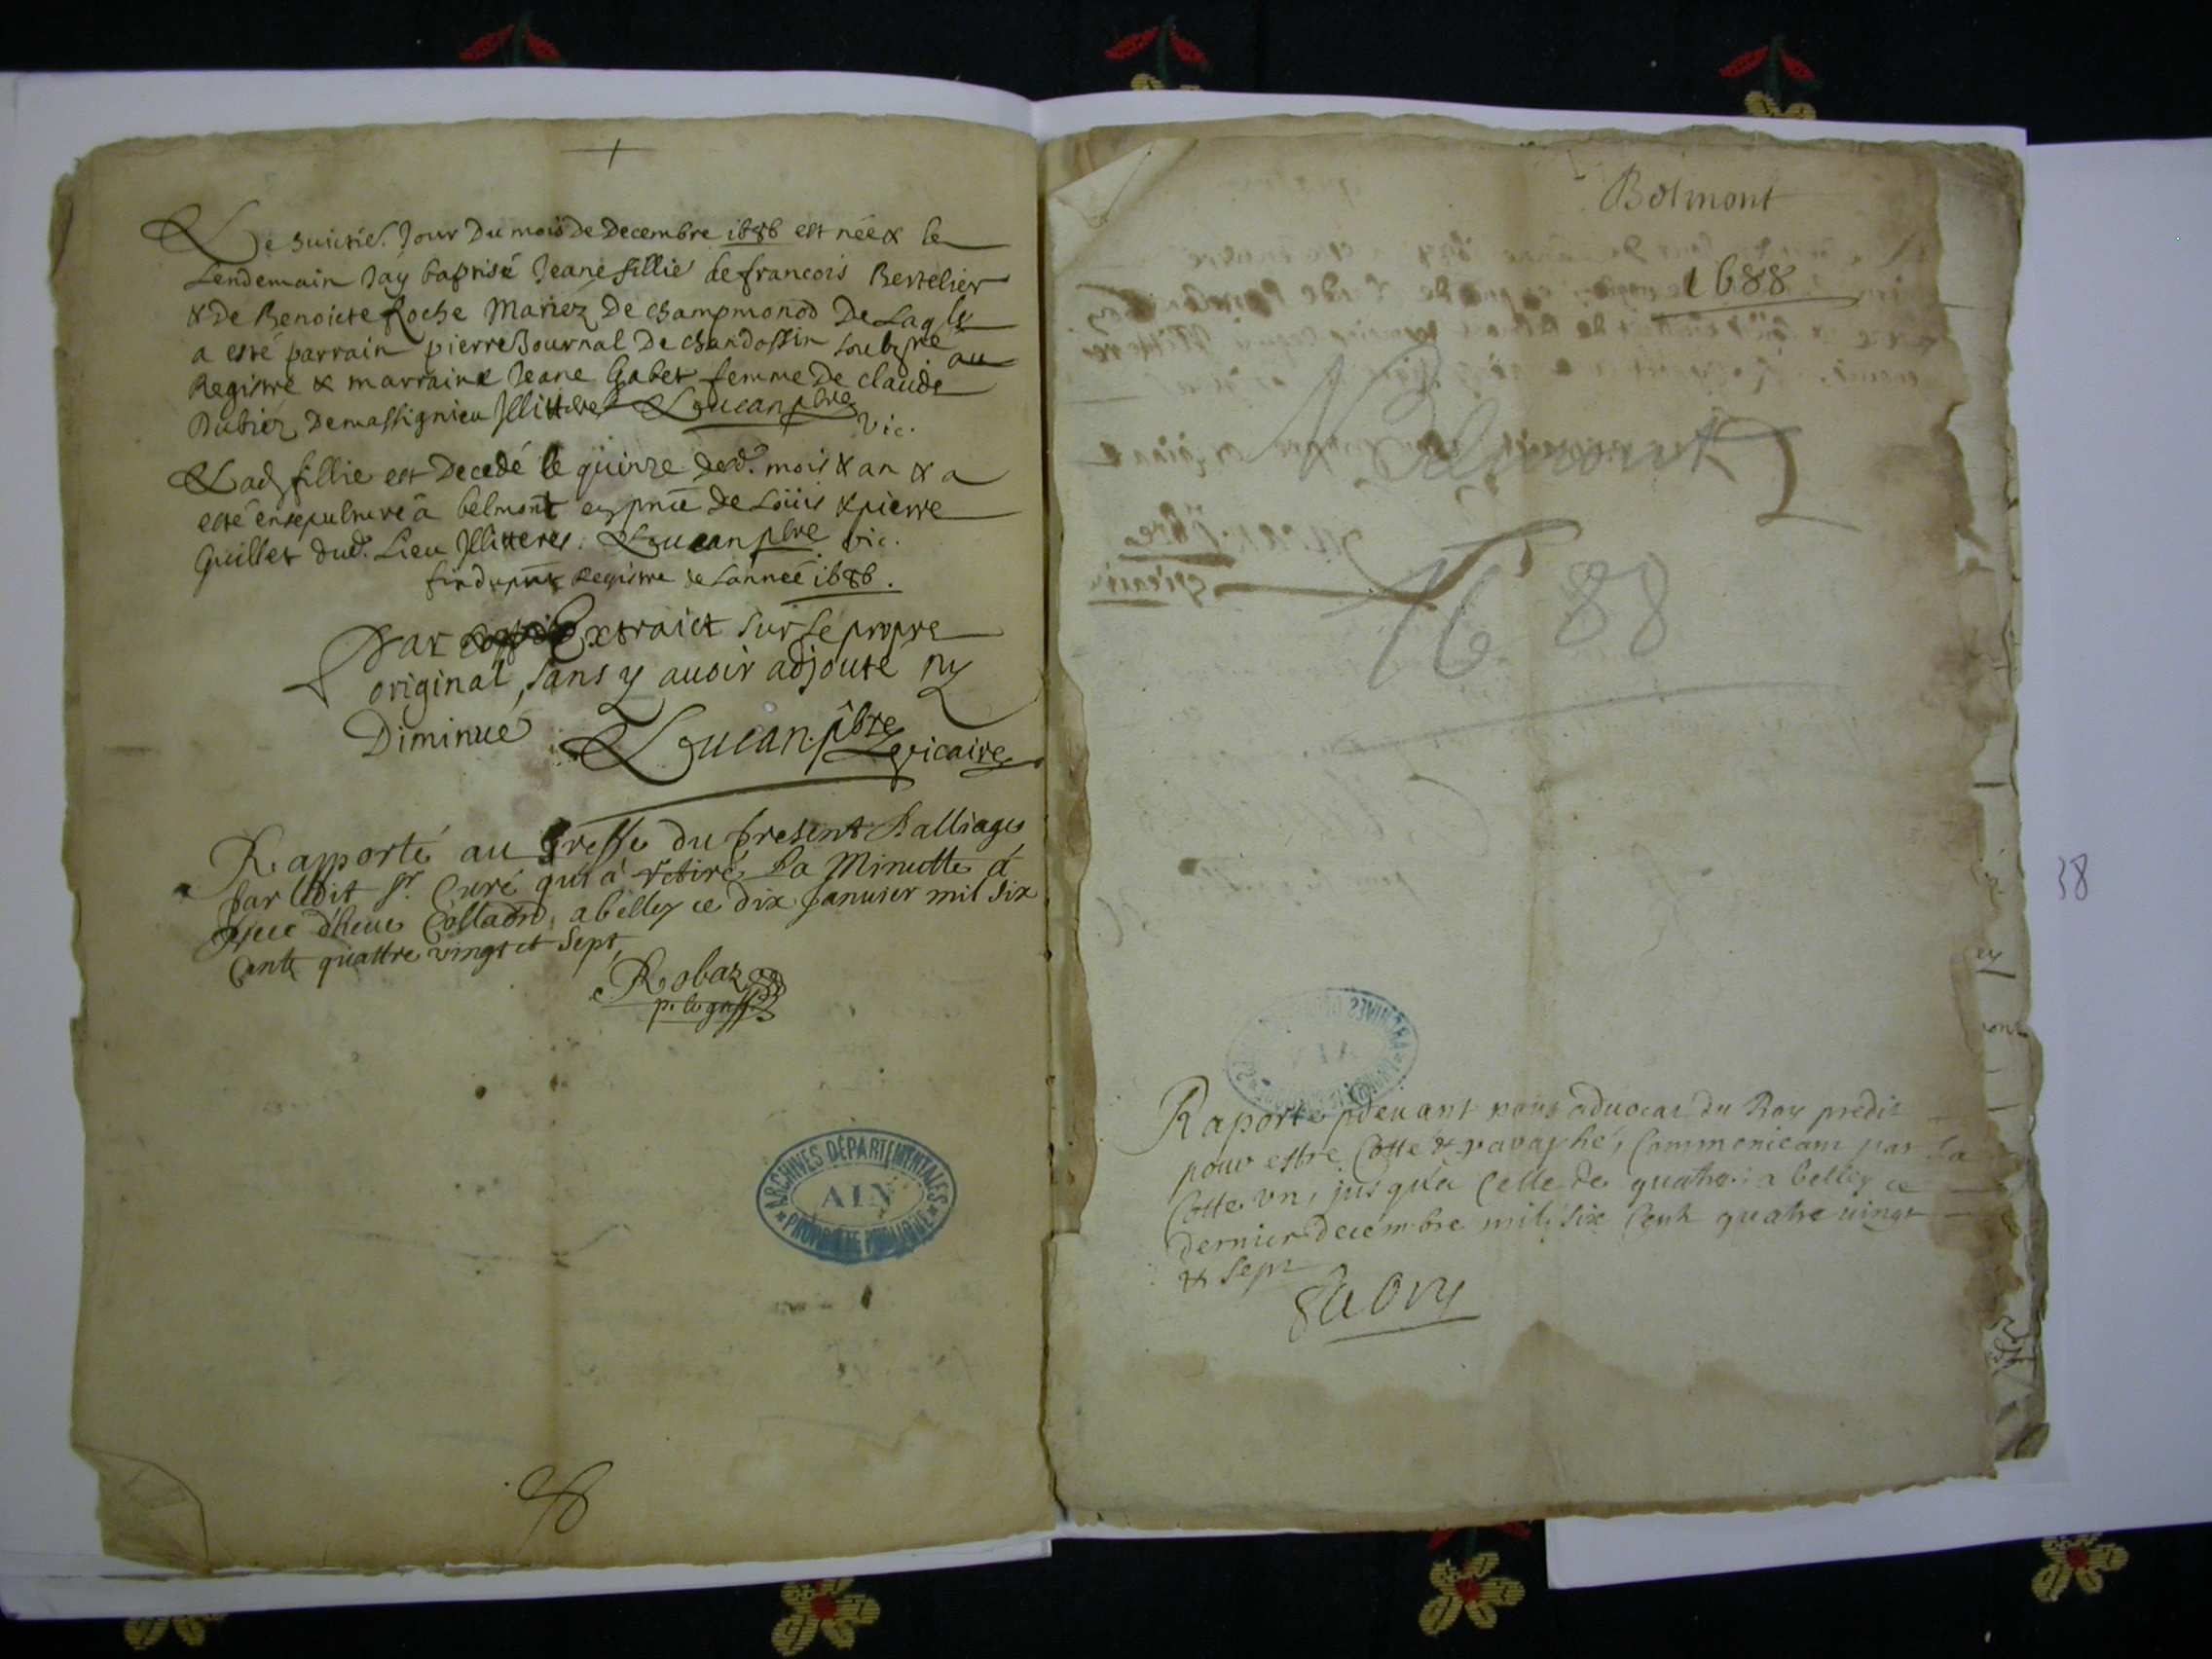 Le huictié. Jour Du mois de Decembre 1686 est née & le
Lendemain Jay baptisé Jeane fillie de francois Bertelier
& de Benoicte Roche Mariez De champmonod De Laq lle
a esté parrain pierre Journal De chandossin soubsné au
Registre & marraine Jeane Gabet femme De claude
Dubiez Demassignieu Illitteré Loucan pbre
vic.
Lad fillie est Decedé le quinze dud. mois & an & a
esté ensepulturé à belmont en pnce de Loüis & pierre
Guillet dud. Lieu Illitterés. Loucan pbre vic.
fin du pnt Registre de Lannee 1686.
Par Extraict sur le propre
original, sans y auoir adjouté ny
Diminué Loucan. pbre
vicaire
Rapporté au Greffe du present Balliage
par ledit sr. Curé qui à retiré La Minutte à
d'heue Collaõn, a belley ce dix Januier mil Six
Cents quattre vingt et Sept,
Robaz
p. le greff.
ARCHIVES DÉPARTEMENTALES
AIN
PROPRIÉTÉ PUBLIQUE
Belmont
1688
Belmont
1688
38
Raporté pdeuant nous aduocat du Roy predit
pour estre Cotté & paraphé, Commenceant par La
Cotte vn, jusqu'a Celle de quatre: a belley ce
dernier decembre mil six Cent quatre uingt
& Sept